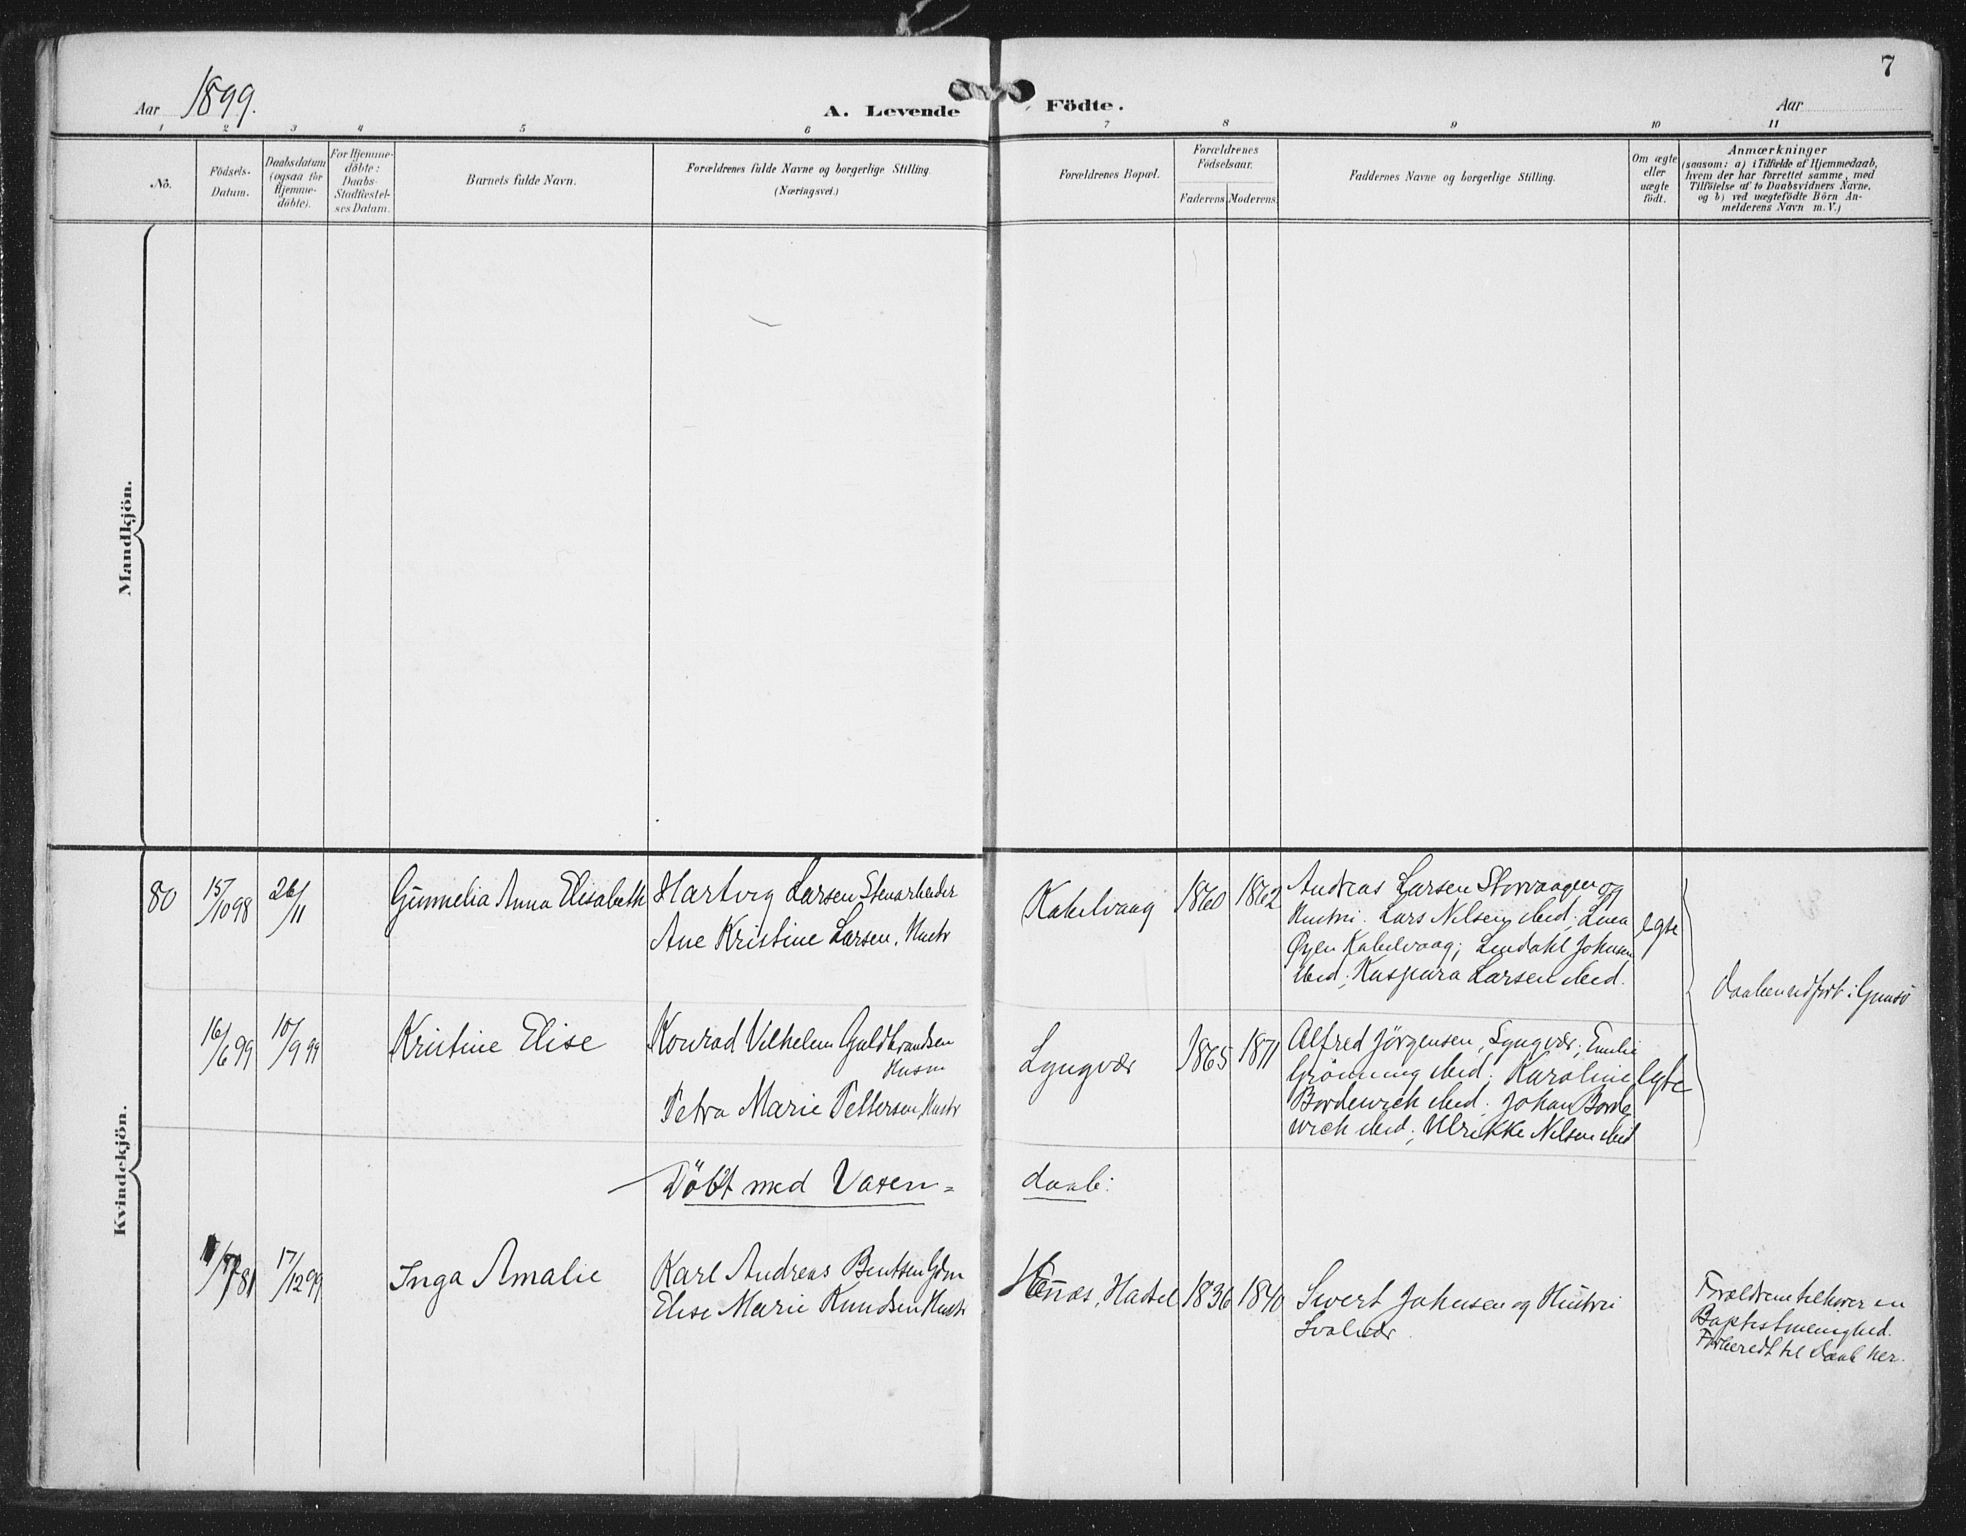 7
Aar 1899.
A. Levende Födte.
Aar
1 2 3 4 5 6 7 8 9 10 11
No.
Födsels-
Datum.
Daabsdatum
(ogsaa for
Hjemme-
döbte).
For Hjemme-
döbte:
Daabs-
Stadfæstel-
ses Datum.
Barnets fulde Navn.
Forældrenes fulde Navne og borgerlige Stilling
(Næringsvei.)
Forældrenes Bopæl.
Forældrenes
Födselsaar.
Faderens
Moderens
Faddernes Navne og borgerlige Stilling.
Om ægte
eller
uægte
födt.
Anmærkninger
(saasom: a) i Tilfælde af Hjemmedaab,
hvem der har forrettet samme, med
Tilföielse af to Daabsvidners Navne,
og b) ved uægtefödte Börn An-
melderens Navn m. V.)
Mandkjön.
Kvindekjön.
80
15/10 98
26/11
Gunnelia Anna Elisabeth
Hartvig Larsen Stenarbeider
Ane Kristine Larsen, Hustr
Kabelvaag
1860
1862
Andreas Larsen Storvaagen og
Hustru. Lars Nilsen ibid; Lina
Øyen Kabelvaag; Lendahl Johnsen
ibid; Kaspara Larsen ibid.
egte
16/6 99
10/9 99
Kristine Elise
Konrad Vilhelm Guldbrandsen
Husm
Petra Marie Pettersen, Hustr
Lyngvær
1865
1871
Alfred Jørgensen, Lyngvær; Emilie
Grönning ibid; Karoline
Bordewich ibid. Johan Borde
wich ibid; Ulrikke Nilsen ibid
egte
Daaben udført i Gimsö
Döbt med Voxen=
daab:
81
17/12 99
Inga Amalie
Karl Andreas Bentsen Gdm
Elise Marie Knudsen Hustr
Hadsel
1836
1840
Sivert Johnsen og Hustru
Svolvær.
Forældrene tilhører en
Baptistmenighed.
Forberedt til Daab her.